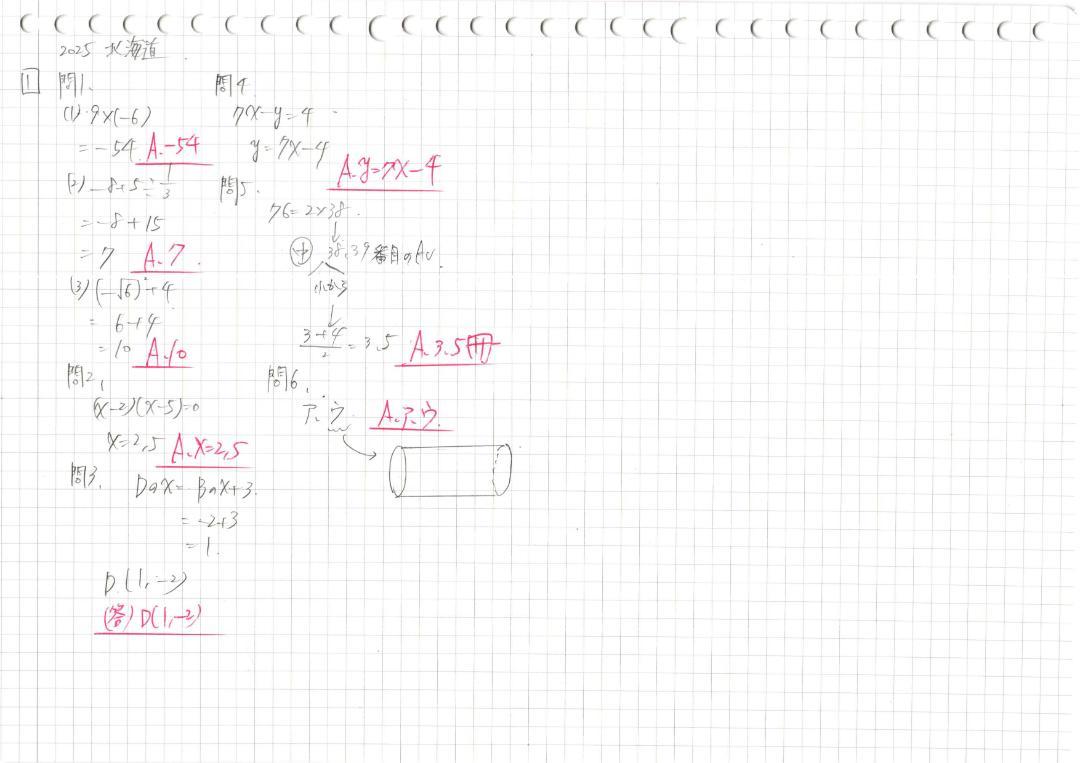 2025 北海道
1 問1、
(1) 9×(-6)
= -54 A.-54
(2) -8+5÷1/3
= -8+15
= 7 A.7
(3) (-√6)²+4
= 6+4
= 10 A.10
問2、
(x-2)(x-5)=0
x=2,5 A.x=2,5
問3、
Dのx= Bのx+3.
= -2+3
= 1.
D(1,-2)
(答) D(1,-2)
問4
7x-y=4
y=7x-4
A.y=7x-4
問5.
76=2×38.
↓
中 38、39番目のAv.
小から
↓
3+4/2=3.5 A.3.5冊
問6、
ア、ウ. A.ア、ウ.